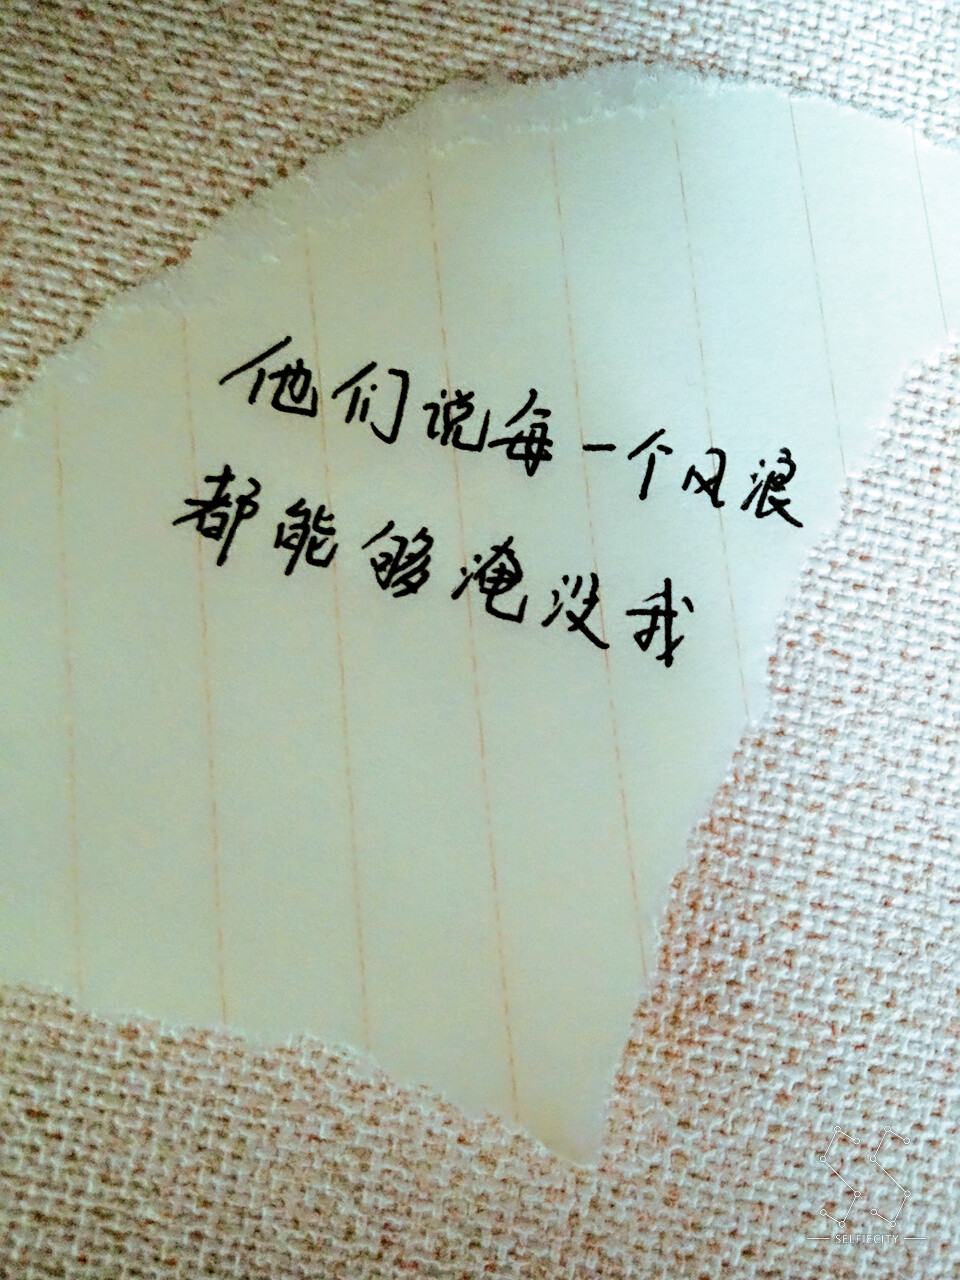 他们说每一个风浪
都能够淹没我
SELFIECITY